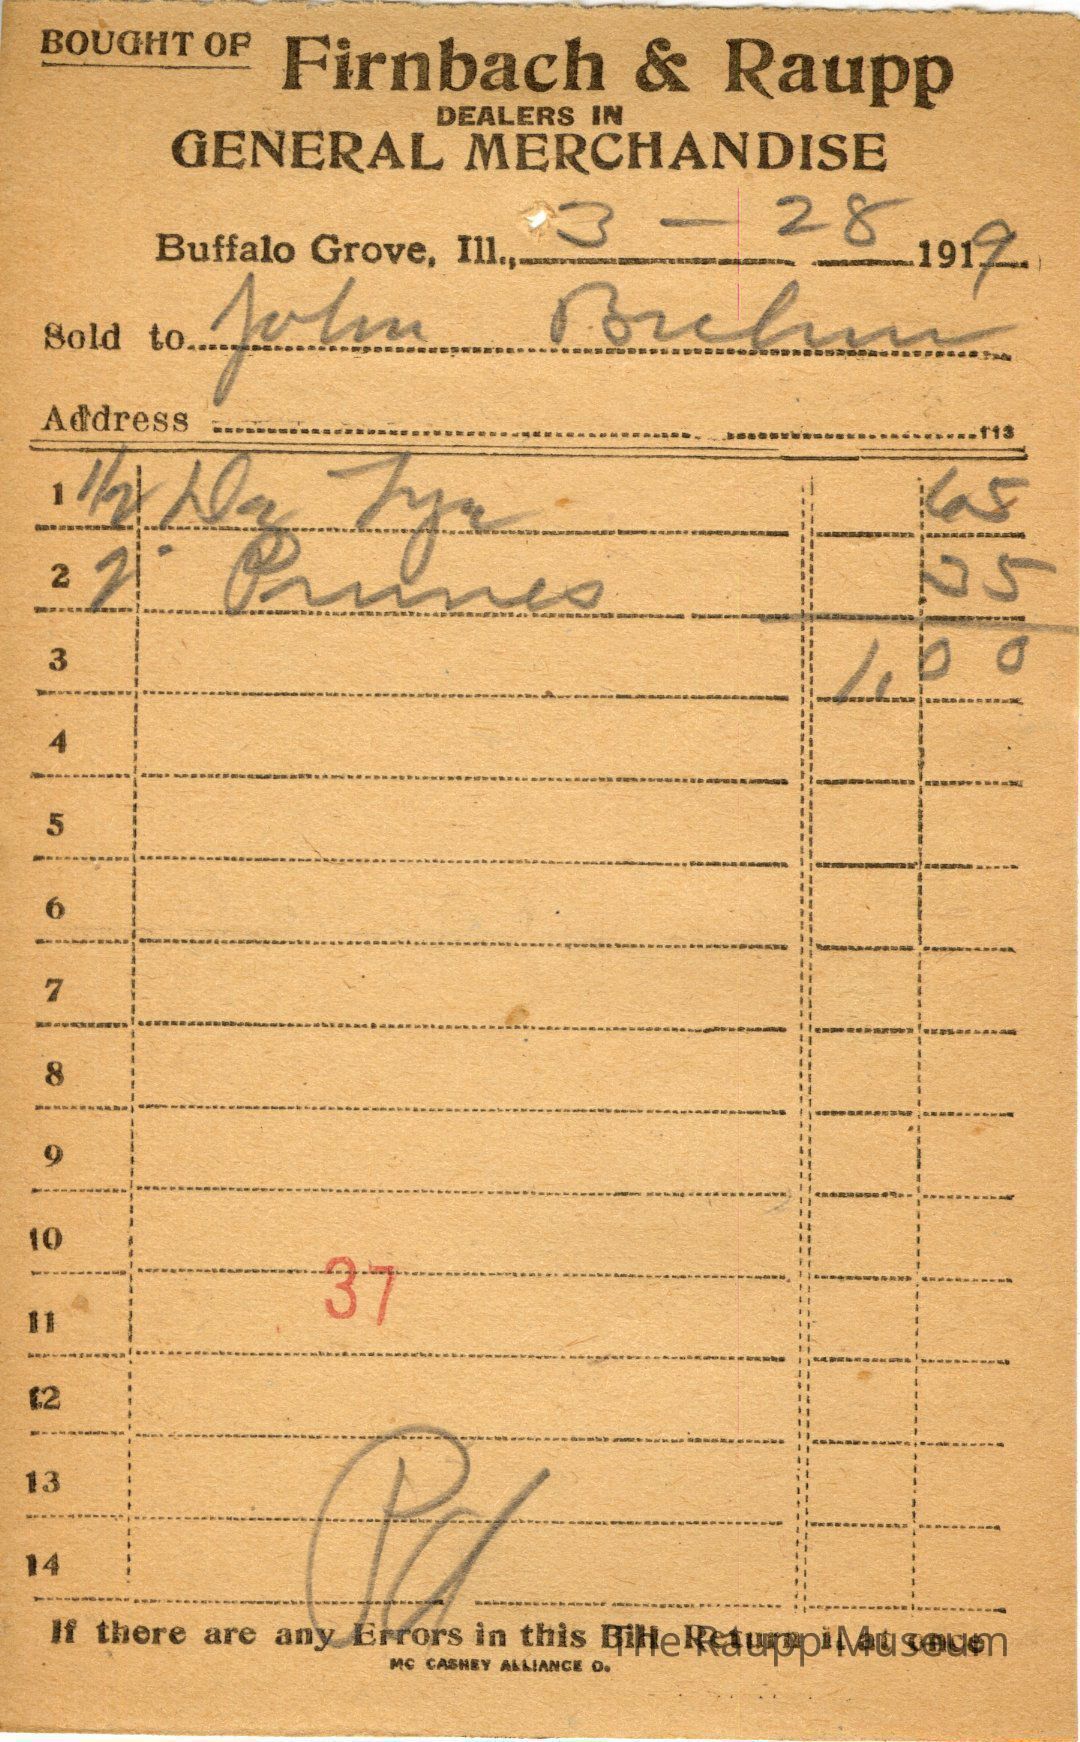 BOUGHT OF Firnbach & Raupp
DEALERS IN
GENERAL MERCHANDISE
Buffalo Grove, Ill., 3 - 28 1919
Sold to John Brehm
Address 113
1 1/2 Dz Lye 65
2 2 Prunes 35
3 1.00
4
5
6
7
8
9
10
37
11
12
13
14
Pd
If there are any Errors in this Bill Return it at once
The Raupp Museum
MC CASKEY ALLIANCE O.